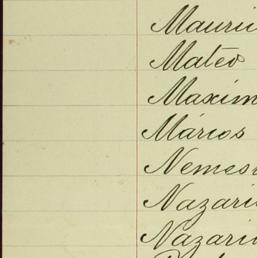 Mauri
Mateo
Maxim
Mários
Nemes
Nazari
Nazari